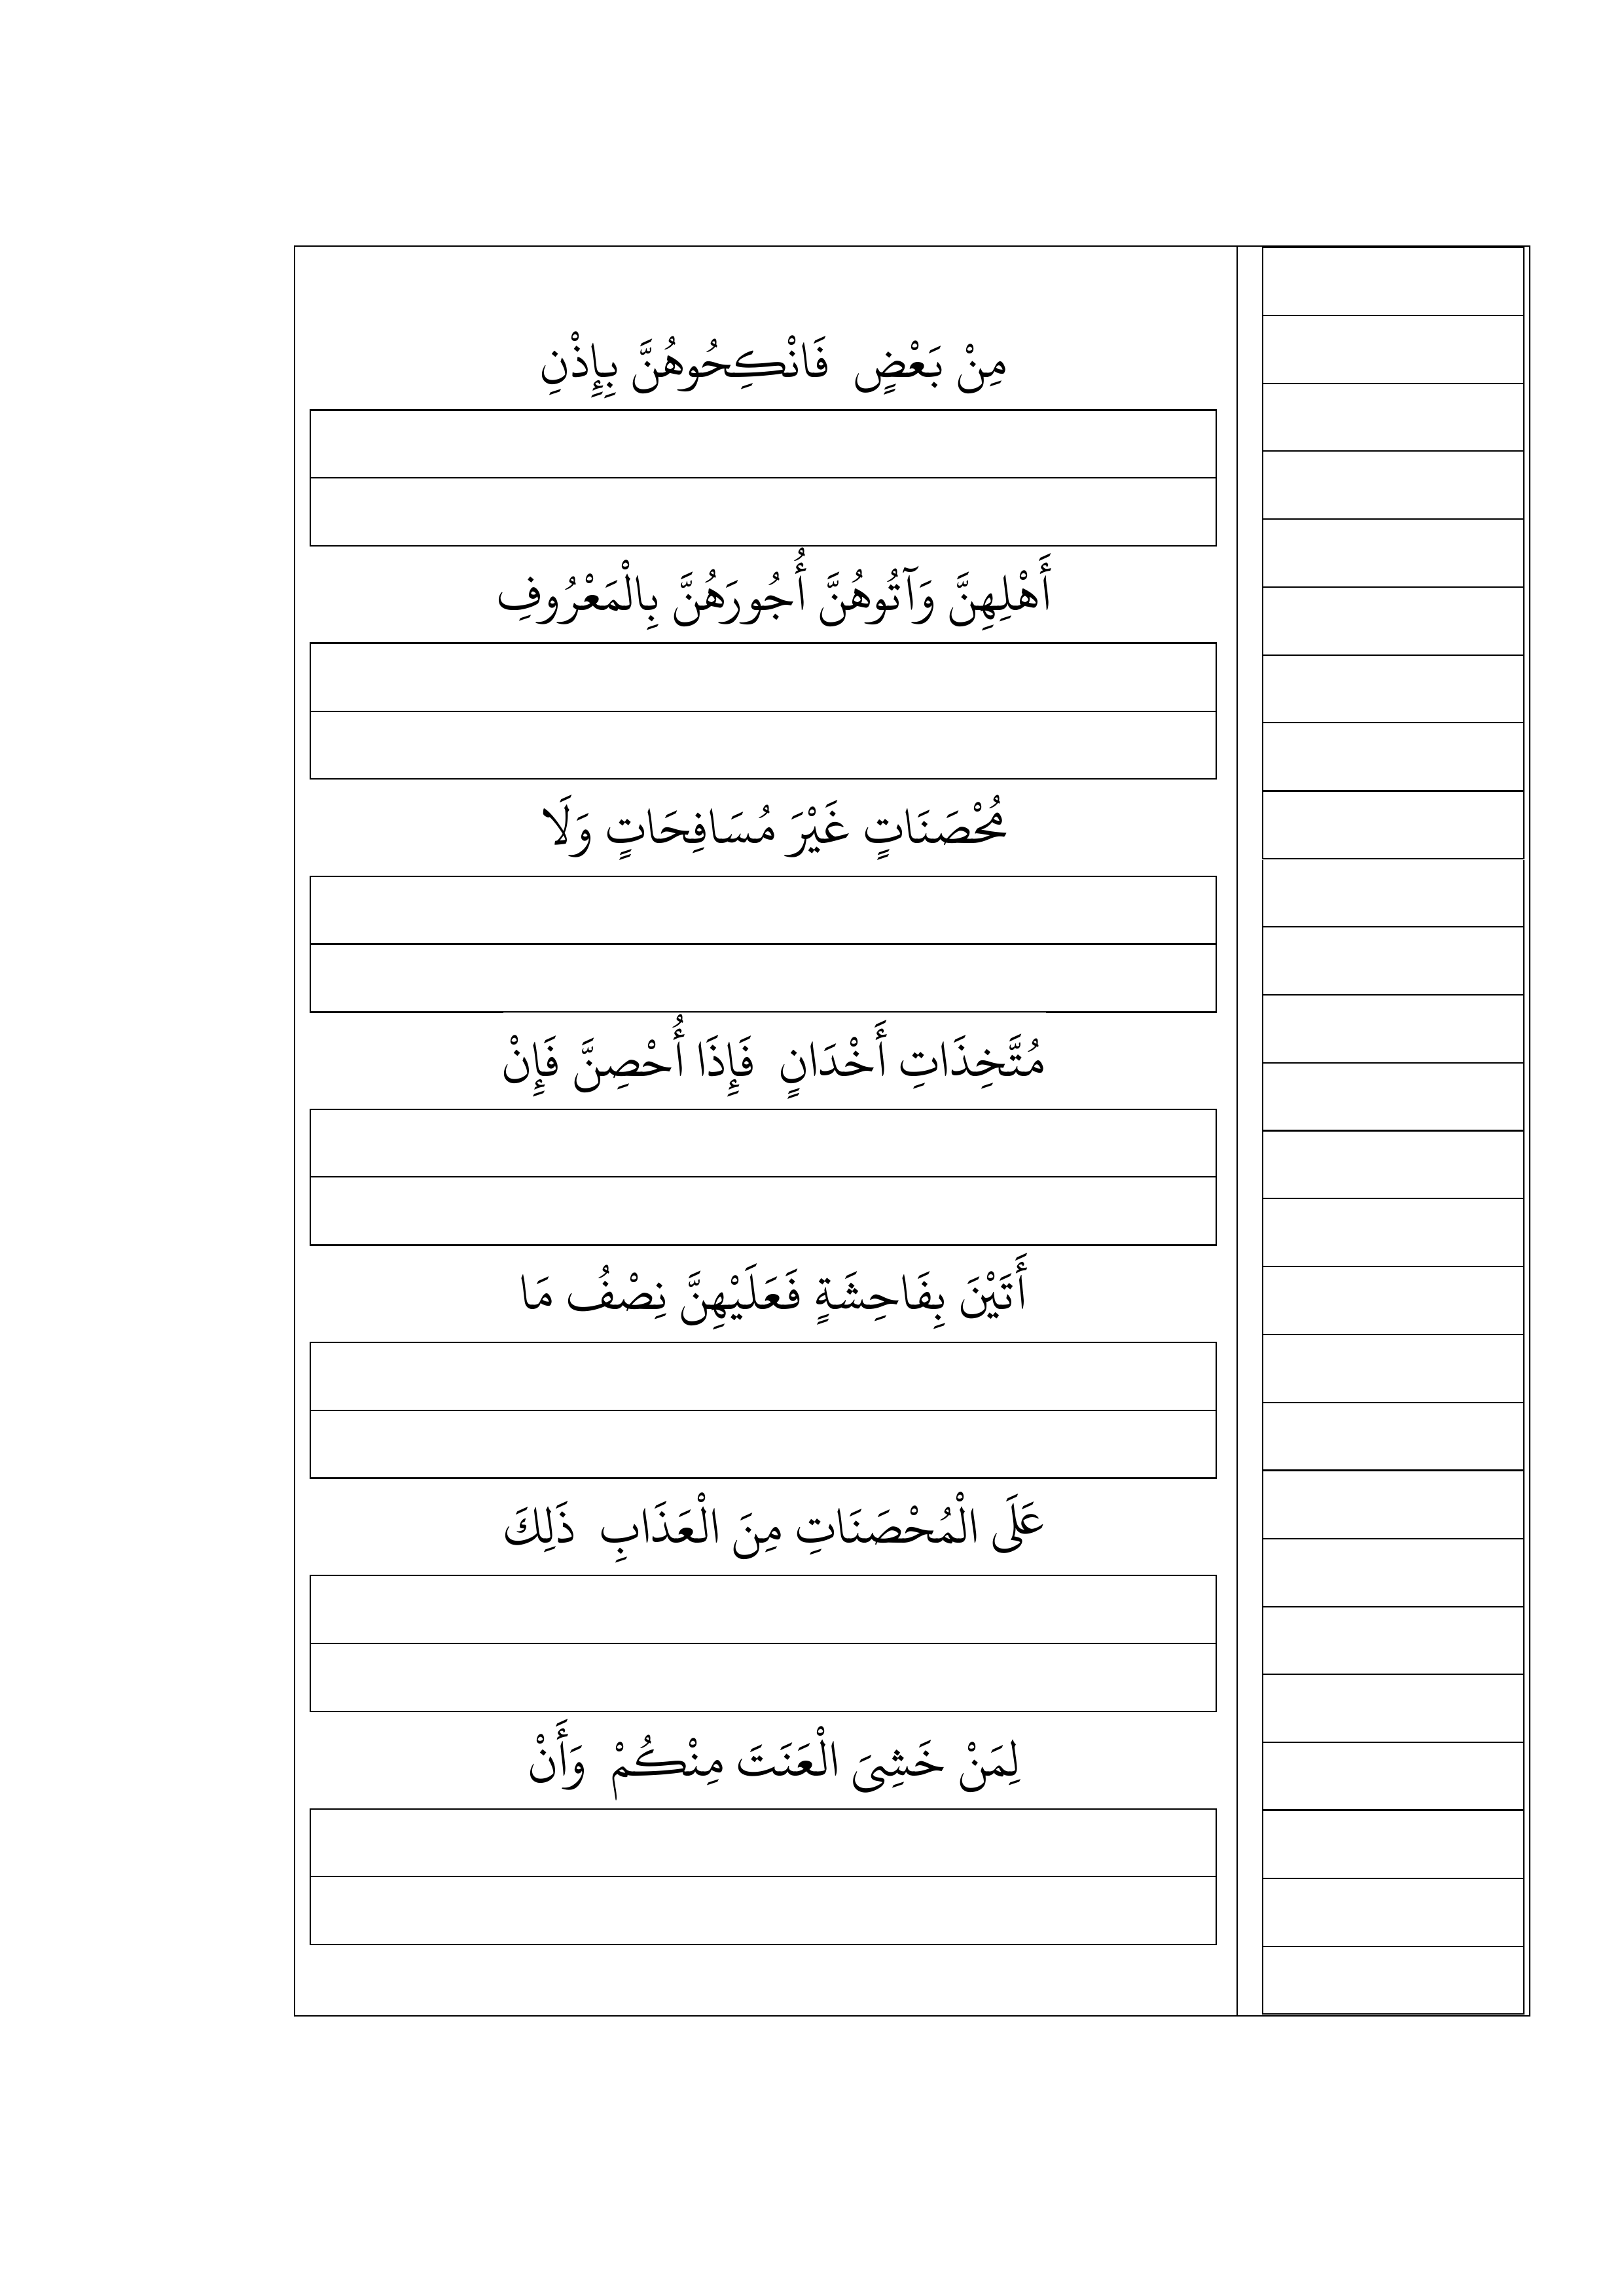 مِنْ بَعْضٍ  فَانْكِحُوهُنَّ بِإِذْنِ
أَهْلِهِنَّ وَآتُوهُنَّ أُجُورَهُنَّ بِالْمَعْرُوفِ
مُحْصَنَاتٍ غَيْرَ مُسَافِحَاتٍ وَلَا
مُتَّخِذَاتِ أَخْدَانٍ  فَإِذَا أُحْصِنَّ فَإِنْ
أَتَيْنَ بِفَاحِشَةٍ فَعَلَيْهِنَّ نِصْفُ مَا
عَلَى الْمُحْصَنَاتِ مِنَ الْعَذَابِ  ذَلِكَ
لِمَنْ خَشِىَ الْعَنَتَ مِنْكُمْ  وَأَنْ